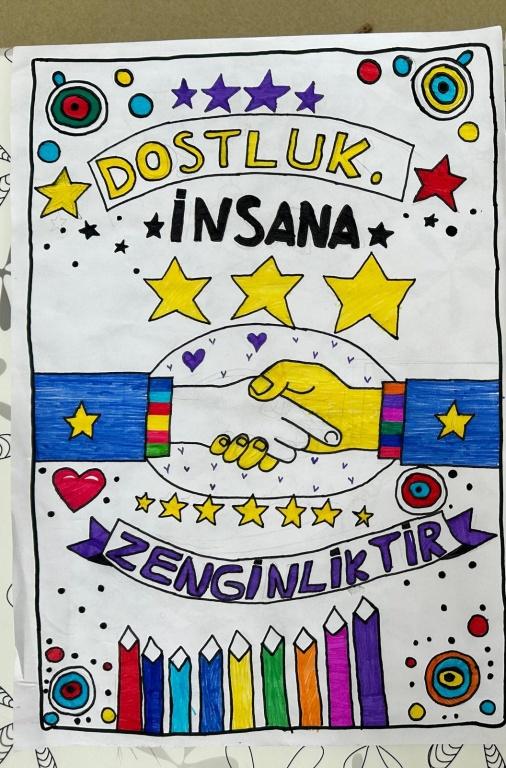 DOSTLUK.
İNSANA
ZENGİNLİKTİR